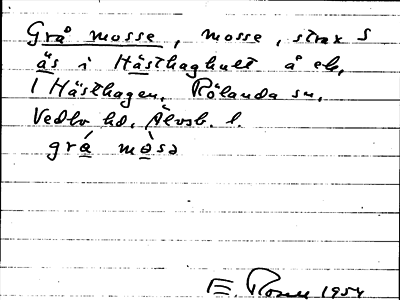 Grå mosse, mosse, strax S
äs i Hästhaghult å ek,
l Hästhagen, Rölanda sn,
Vedbo hd, Älvsb. l.
grá mòsə
E. 1954